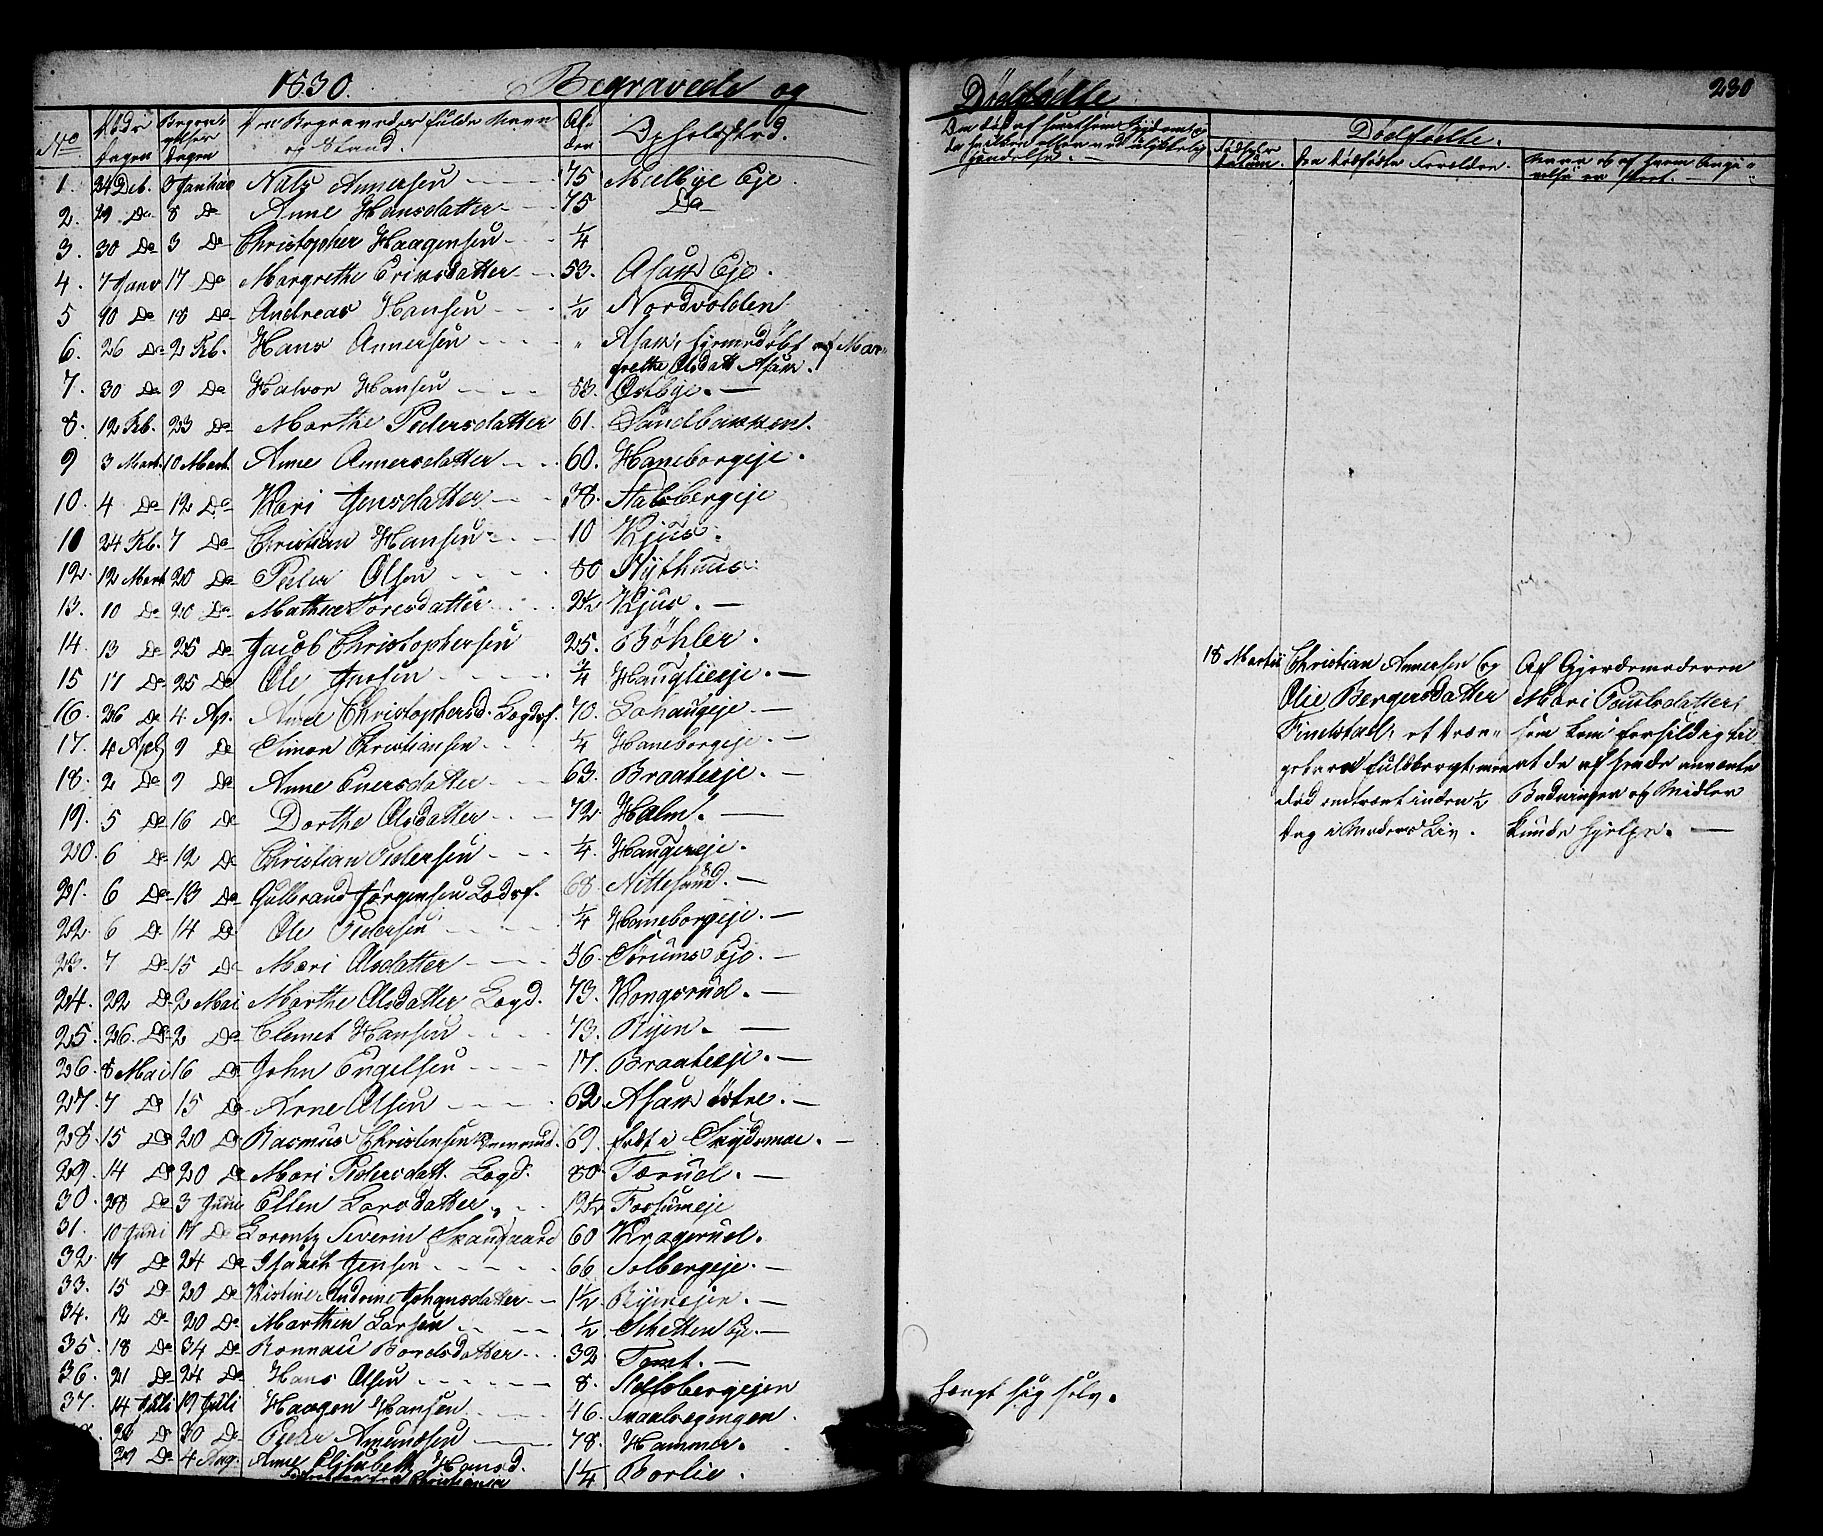 1830. Begravede og
No Döds Dagen Begravelses Dagen Den Begravedes fulde Navn og Stand. Alder Opholdsted.
1. 24 Deb. 6 Januar Nils Annersen 75 Mælbye Eje
2. 29 Do 8 Do Anne Hansdatter 75 Do
3. 30 Do 3 Do Christopher Haagensen 1/4
4. 7 Janv 17 Do Margrethe Ericsdatter 53. Asak Eje.
5 10 Do 18 Do Andreas Hansen 1/2 Nordvolden
6. 26 Do 2 Feb. Hans Annersen " Asak, hjemedöbt af Mar-
grethe Olsdatt Asak.
7. 30 Do 9 Do Halvor Hansen 53. Ostbye.
8. 12 Feb. 23 Do Marthe Pedersdatter 61. Sandbakken.
9 3 Mart. 10 Mart. Anne Annersdatter 60. Haneborgeje.
10. 4 Do 12 Do Kari Jensdatter 38. Stalsbergeje
11 24 Feb. 7 Do Christian Hansen 10 Kjus.
12. 12 Mart 20 Do Peder Olsen 80 Nythuus
13. 10 Do 20 Do Mathea Toresdatter 2 1/2 Kjus.
14. 13 Do 25 Do Jacob Christophersen 25. Böhler.
15 17 Do 25 Do Ole Jensen 3/4 Hauglieeje.
16. 26 Do 4 Ap. Anne Christophersd. Logdsf. 70. Lohaugeje.
17. 4 Apl 9 Do Simon Christiansen 1/4 Haneborgeje.
18. 2 Do 9 Do Anne Enersdatter 63. Braateeje.
19. 5 Do 16 Do Dorthe Olsdatter 72. Halm.
20. 6 Do 12 Do Christian Pedersen 1/4. Haugereje.
21. 6 Do 13 Do Gulbrand Jörgensen Lodsf. 68. Nittesund.
22. 6 Do 14 Do Ole Pedersen 1/4 Haneborgeje.
23. 7 Do 15 Do Mari Olsdatter 36. Sörums Eje.
24. 22 Do 2 Mai Marthe Olsdatter Logd. 73. Kongsrud.
25. 26. Do 2 Do Clemet Hansen 73. Ryen.
26. 8 Mai 16 Do John Engelsen 17. Braateeje.
27. 7 Do 15 Do Arne Olsen 62. Asak östre.
28. 15 Do 20 Do Rasmus Christensen 69. fodt i Skydsmoe.
29. 14 Do 20 Do Mari Pedersdatt. Logd. 80. Tærud.
30. 28 Do 3 Juni Ellen Larsdatter 12 1/2 Fossumeje
31. 10 Juni 17 Do Lorentz Severin Skandgaard 60 Kragerud.
32. 17 Do 24 Do Isaach Jensen 66 Solbergeje.
33. 15 Do 20 Do Kistine Andrine Johansdatter 1 1/2 Ryeneien.
34. 12 Do 20 Do Marthin Larsen 1/2 Schetten Eje.
35. 18 Do 24 Do Ronnau Bordsdatter 32 Tomt.
36. 21 Do 24 Do Hans Olsen 8. Stalsbergejen
37. 14 Juli 19 Juli Haagen Hansen 46. Svaalsegengen.
23 Do 30 Do Peder Amundsen 78. Hammer.
29 Do 4 Aug. Anne Elisabeth Hansd. 1 1/4 Borlie.
Christiania
Dödfödte 230
Dödfödte.
Födsels Datum. Den dödfödtes Forældre. Navn og af hvem Angi-
velse er skeet.
18 Martii Christian Annersen Og Olie Bergersdatter Kindstad, et Dræn-
gebarn fuldbaaret, men död omtrent inden 1/2 Dag i Moders Liv.
Af Gjordemoderen
Mari Poulsdatter,
som kom forsildig til
at de af hende anvente
Badninger og Midler
kunde hjelpe.
hængt sig selv.